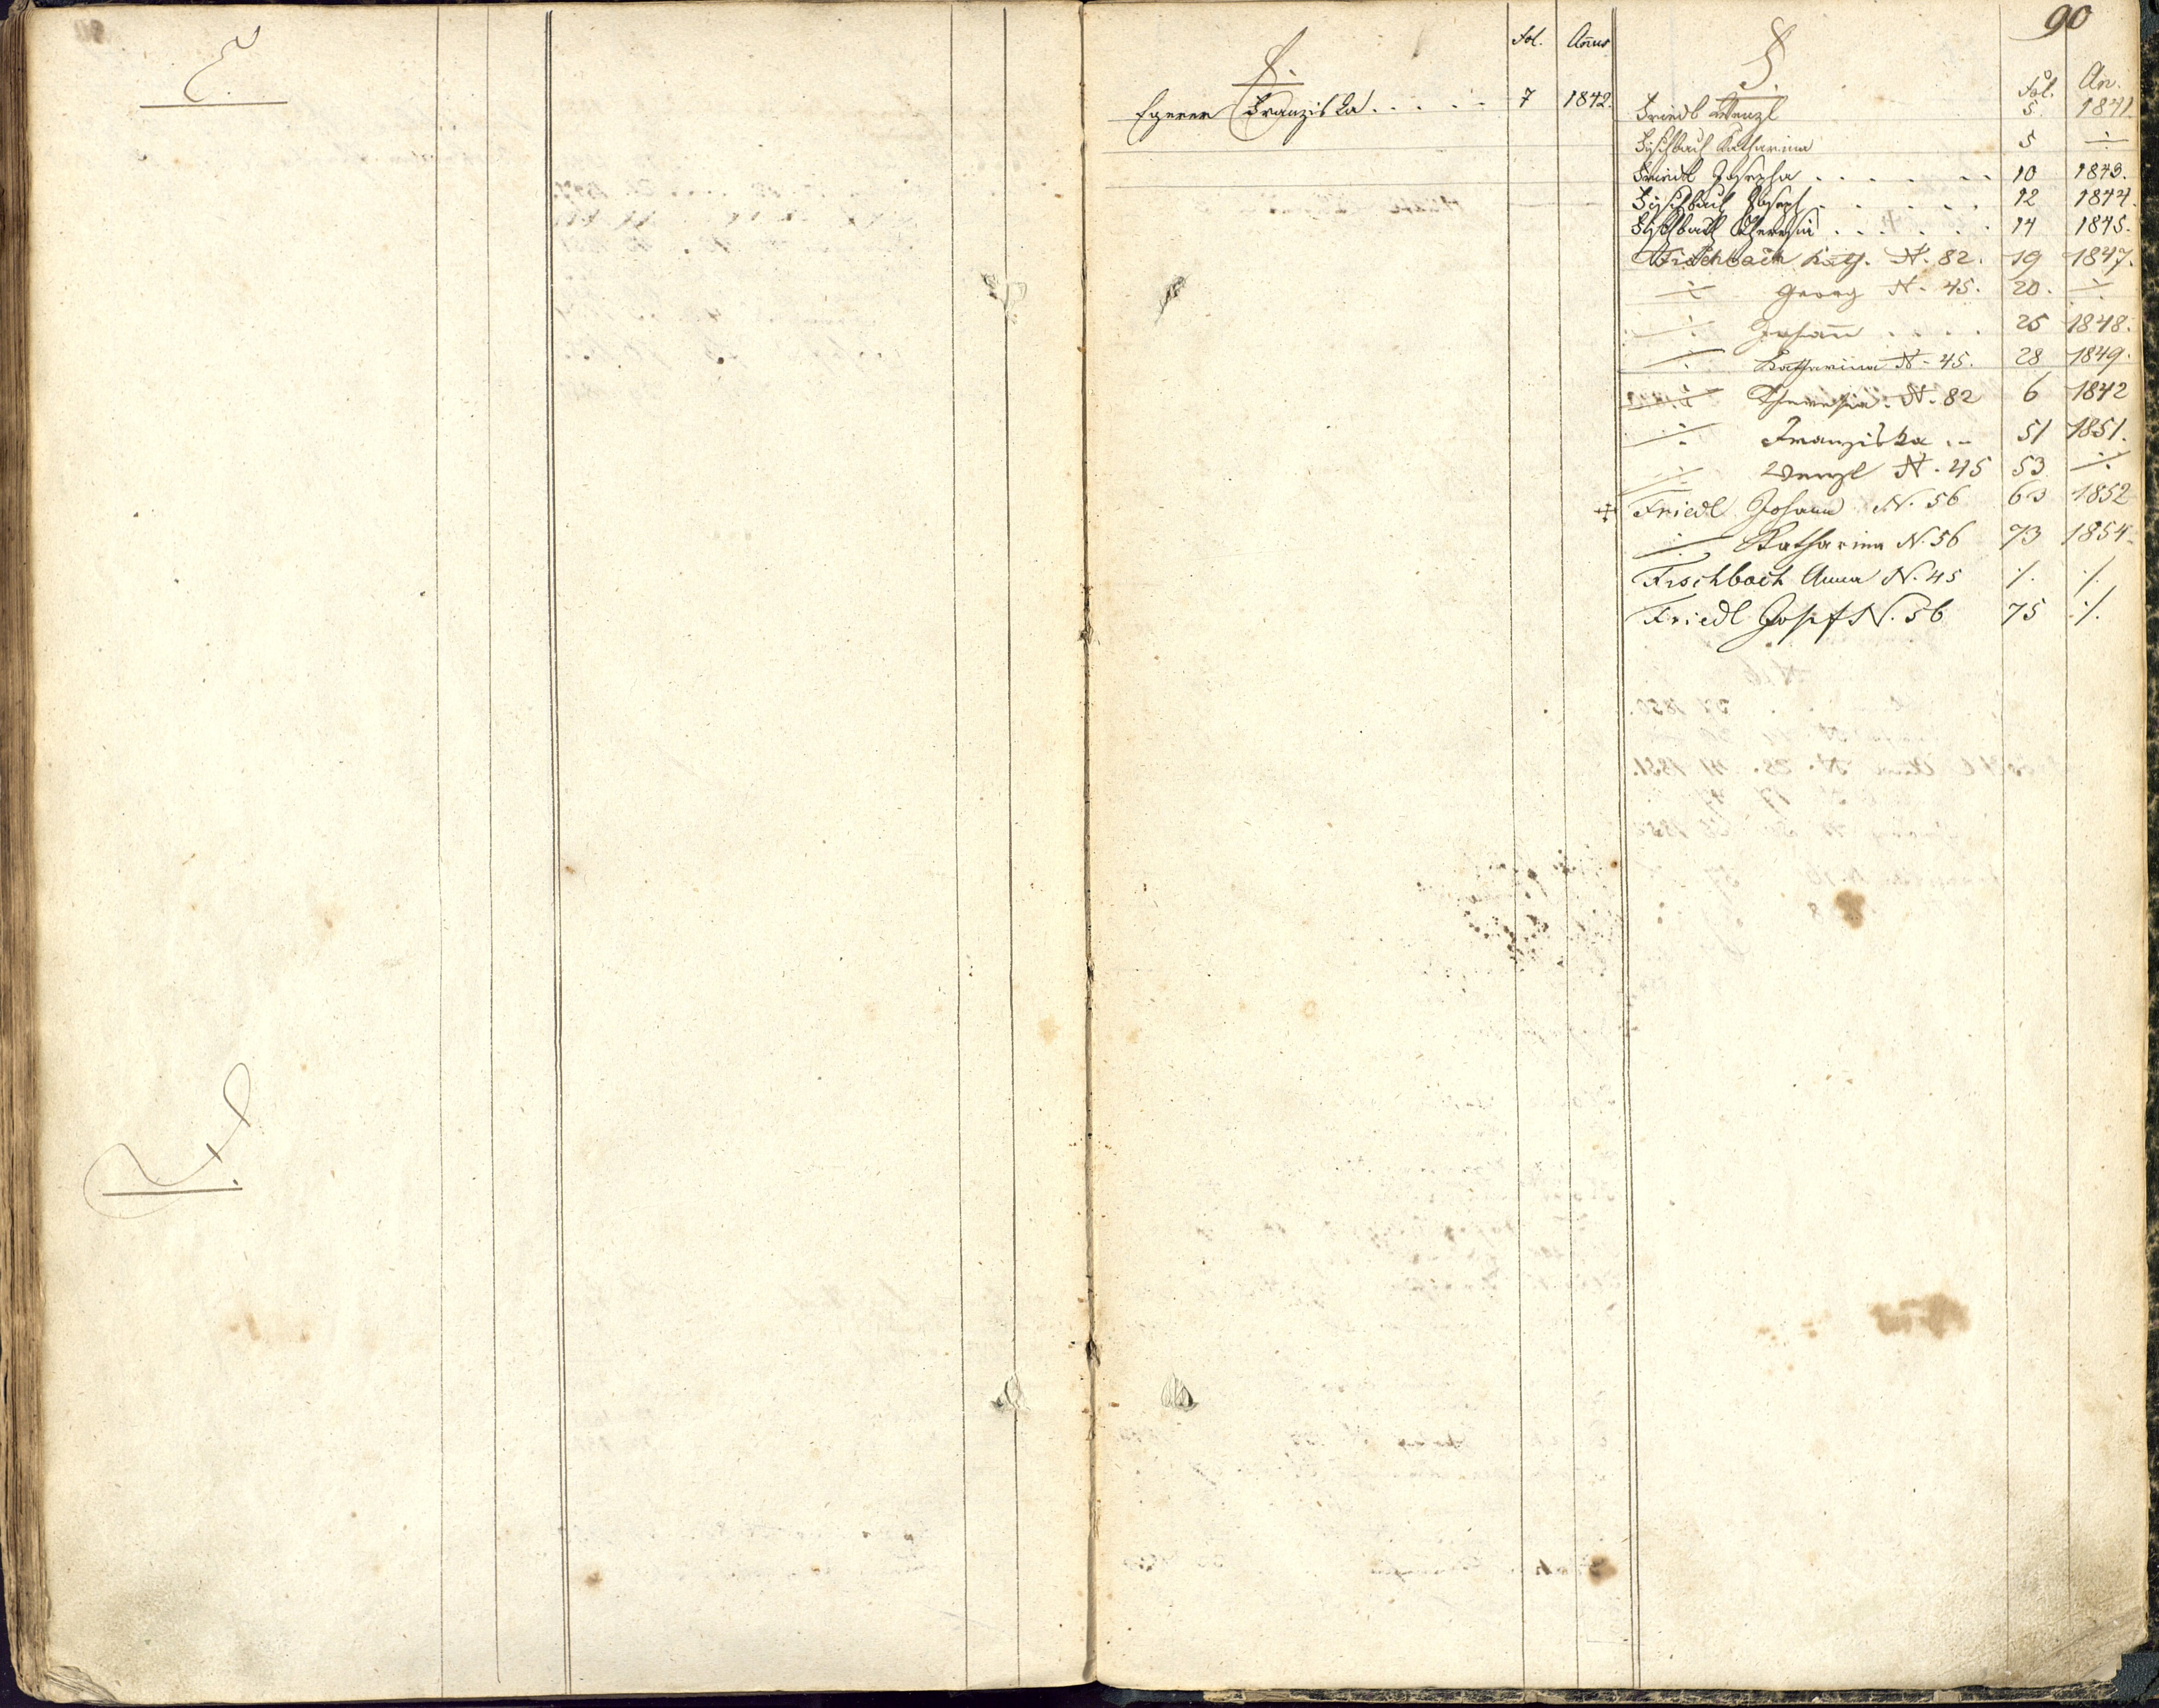 90
E.
Fol. Añus
Egerer Franziska . . . . . 7 1842.
F.
Fol. An.
Friedl Wenzl 5 1841.
Fischbach Katharina 5 ÷
Friedl Josepha . . . . . . 10 1843.
Fischbach Joseph . . . . . 12 1844.
Fischbach Theresia . . . . . . 14 1845.
Fischbach N. 82. 19 1847.
÷ Georg N. 45. 20. ÷
÷ Johañ . . . . 25 1848.
÷ Katharina N. 45. 28 1849.
÷ Theresia. N. 82 6 1842
÷ Franziska . - 51 1851.
÷ Wenzl N. 45 53. ÷
Friedl Johann N. 56 63 1852
÷ Katharina N. 56 73 1854.
Fischbach Anna N. 45 ·/. ·/.
Friedl Josef N. 56 75 ·/.